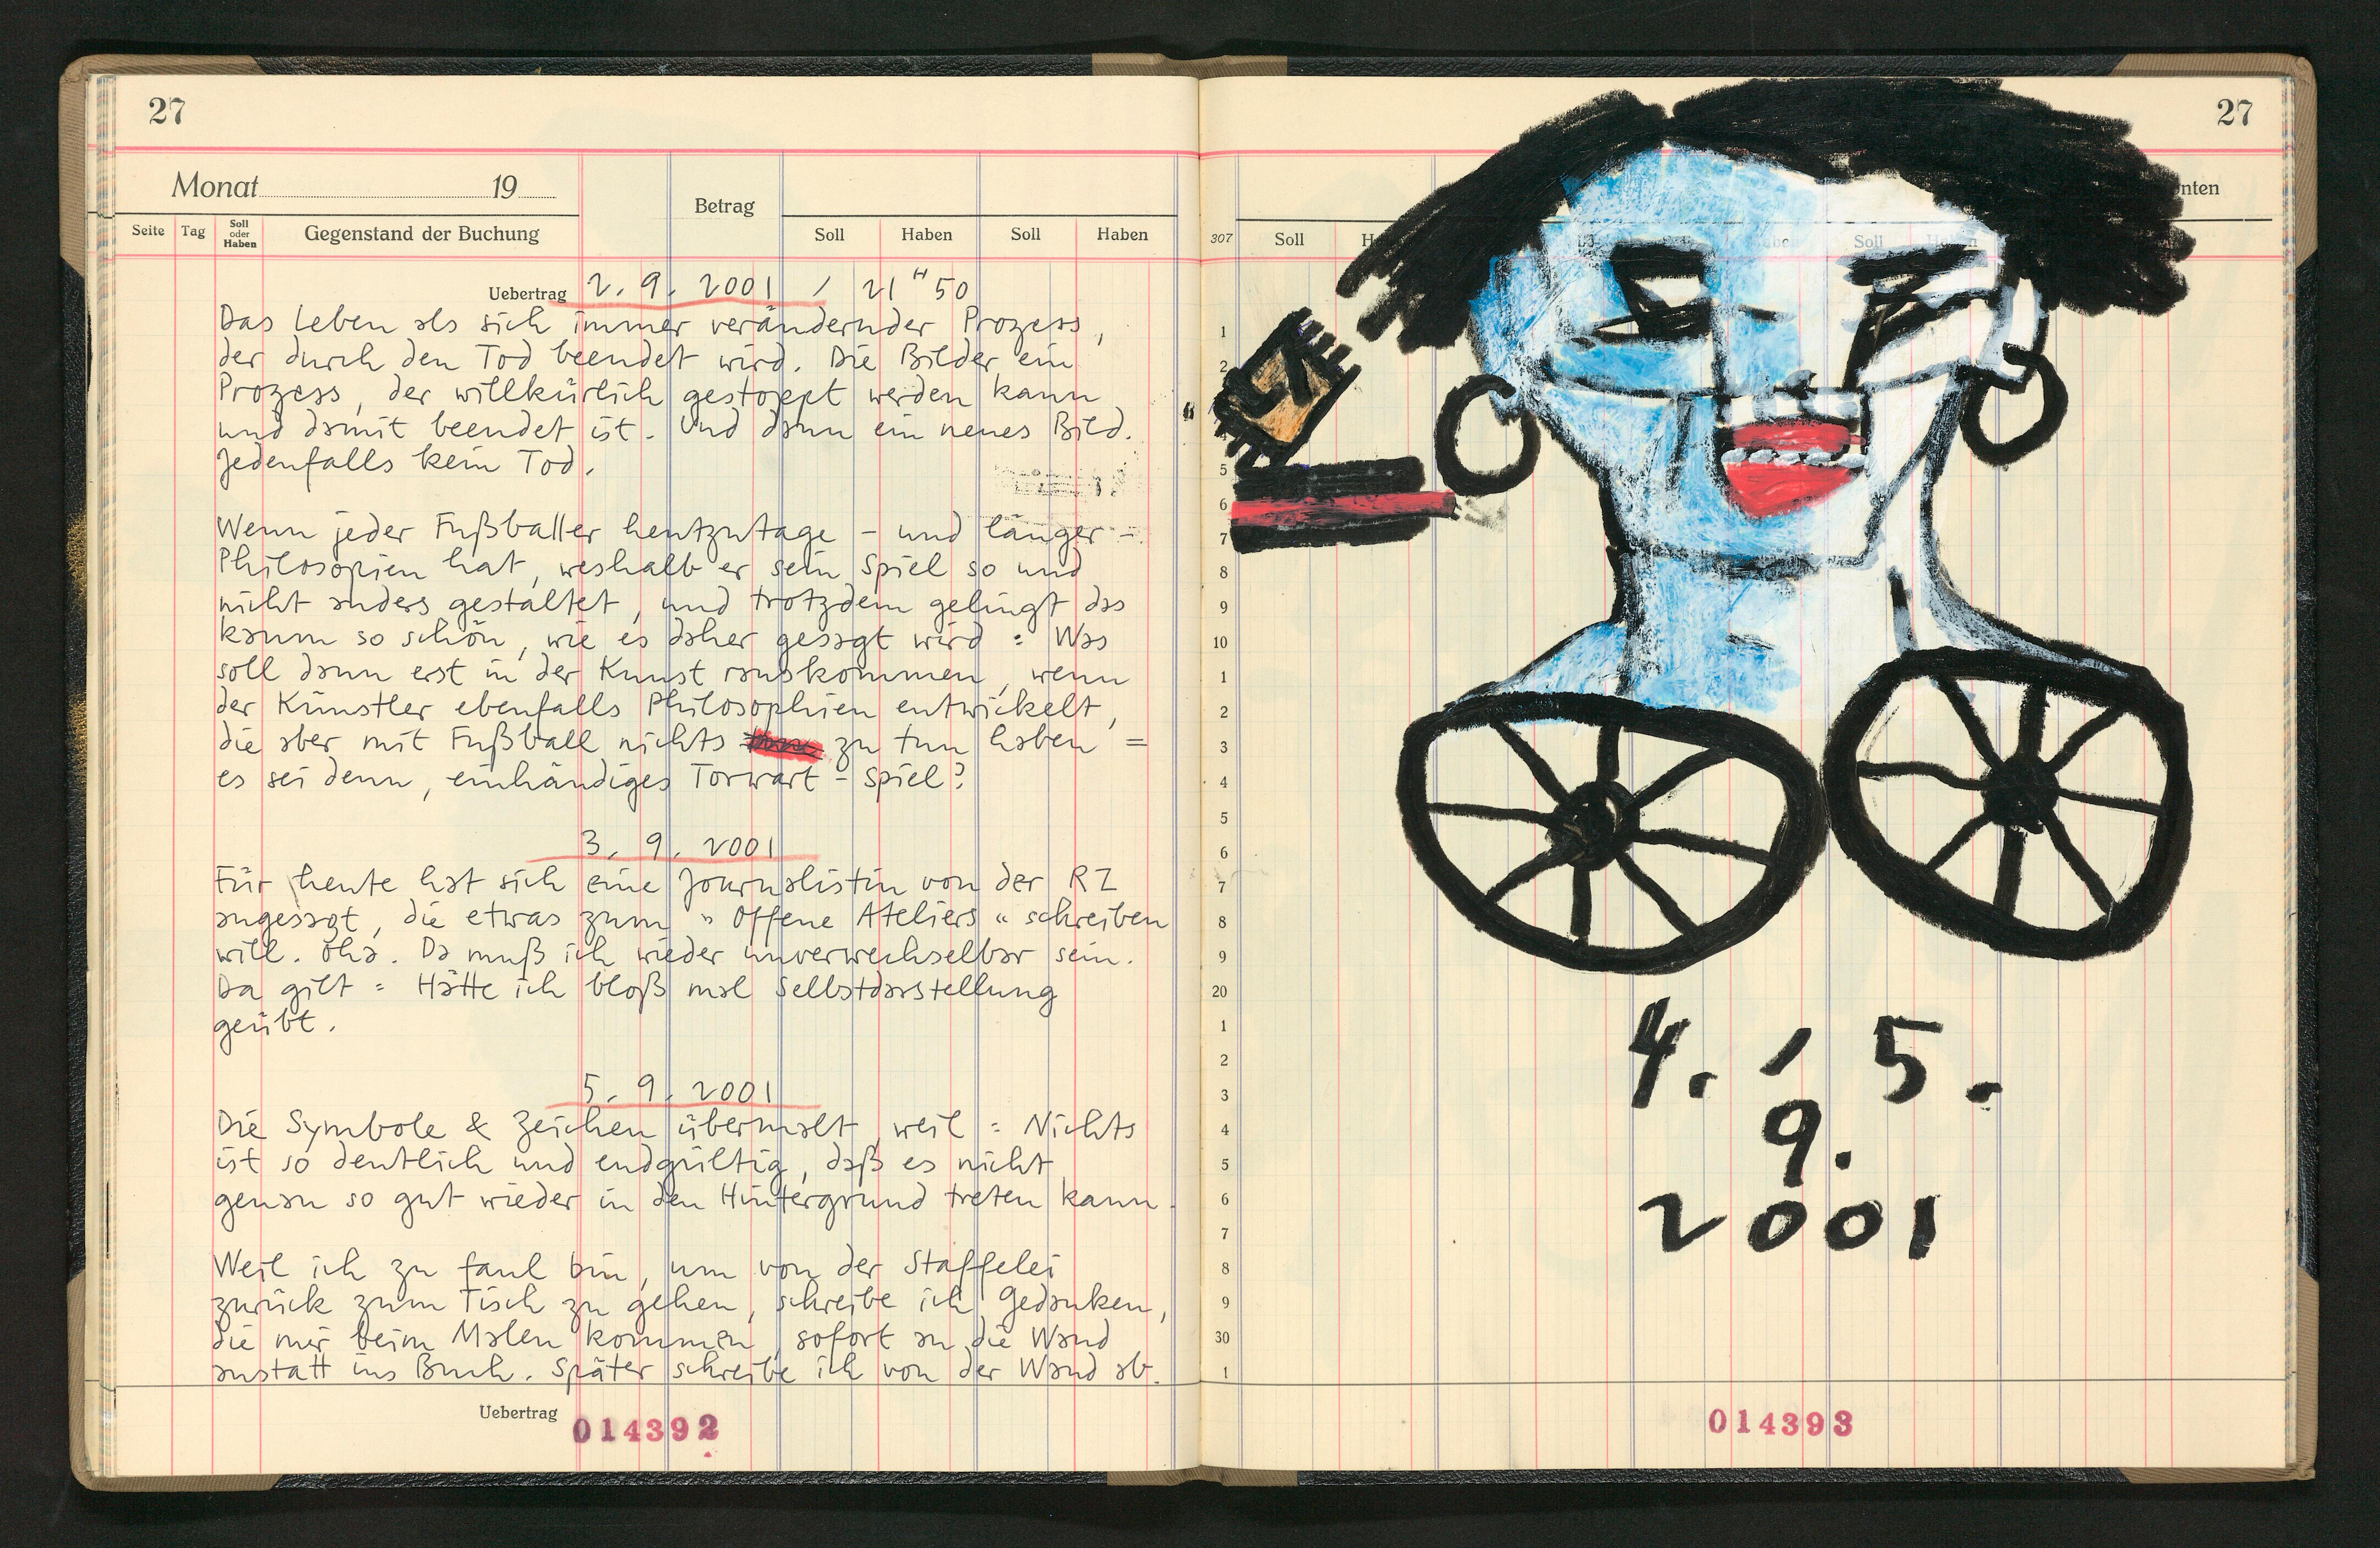 27
Monat 19
Betrag
Seite Tag Soll oder Haben Gegenstand der Buchung Soll Haben Soll Haben
Uebertrag 2. 9. 2001 / 21 H 50
Das Leben als sich immer verändernder Prozess,
der durch den Tod beendet wird. Die Bilder ein
Prozess, der willkürlich gestoppt werden kann
und damit beendet ist. Und dann ein neues Bild.
Jedenfalls kein Tod.
Wenn jeder Fußballer heutzutage – und länger –
Philosopien hat, weshalb er sein Spiel so und
nicht anders gestaltet, und trotzdem gelingt das
kaum so schön, wie es daher gesagt wird : Was
soll dann erst in der Kunst rauskommen, wenn
der Künstler ebenfalls Philosophien entwickelt,
die aber mit Fußball nichts zu tun haben =
es sei denn, einhändiges Torwart-Spiel?
3. 9. 2001
Für heute hat sich eine Journalistin von der RZ
angesagt, die etwas zum "Offene Ateliers" schreiben
will. Oha. Da muß ich wieder unverwechselbar sein.
Da gilt : Hätte ich bloß mal Selbstdarstellung
geübt.
5. 9. 2001
Die Symbole & Zeichen übermalt, weil : Nichts
ist so deutlich und endgültig, daß es nicht
genau so gut wieder in den Hintergrund treten kann.
Weil ich zu faul bin, um von der Staffelei
zurück zum Tisch zu gehen, schreibe ich Gedanken,
die mir beim Malen kommen, sofort an die Wand
anstatt ins Buch. Später schreibe ich von der Wand ab.
Uebertrag
014392
27
nten
307 Soll
Soll
1
2
5
6
7
8
9
10
1
2
3
4
5
6
7
8
9
20
1
2
3
4
5
6
7
8
9
30
1
4. / 5.
9.
2001
014393